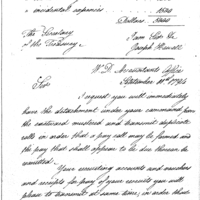 " incidental expences — 1500
Dollars 5000
The Secretary
of the Treasury
I am Sir &c
Joseph Howell
W. D. Accountants Office
September 10th 1794
Sir
I request you will immediately
have the detachment under your command have
the customed mustered and transmit duplicate
rolls in order that a pay roll may be formed and
the pay that shall appear to be due thereon be
remitted.
Your recruiting accounts and vouchers
and receipts for pay of your recruits you will
please to transmit at same time, in order that